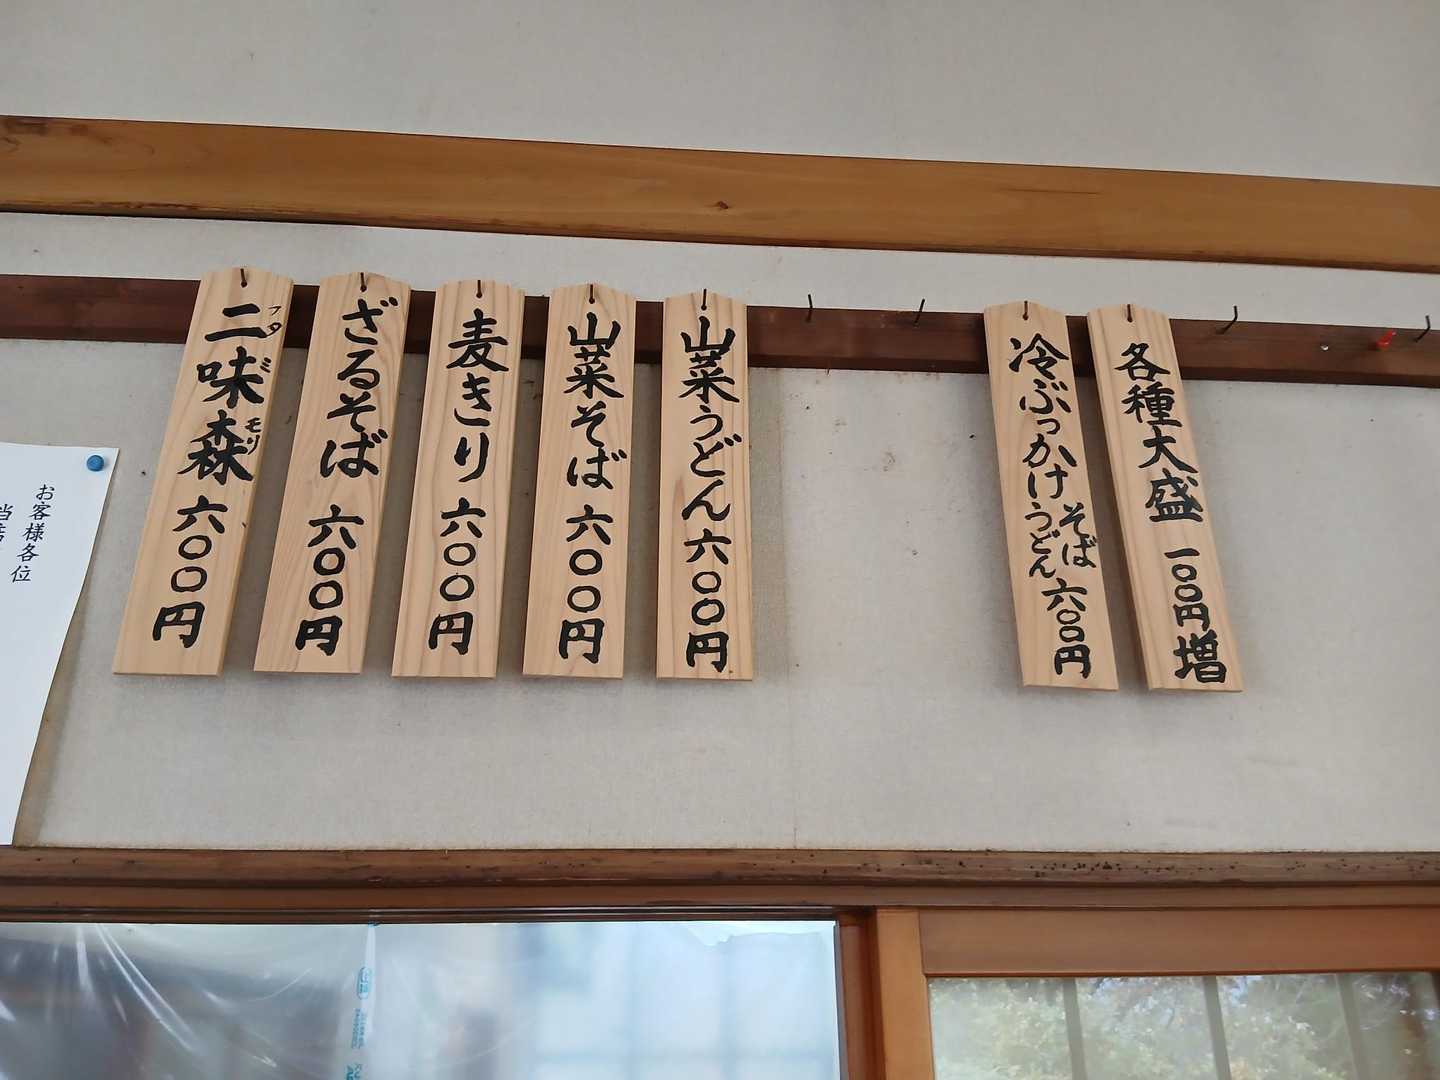 各種大盛 一〇〇円増
冷ぶっかけ そば うどん 六〇〇円
山菜うどん 六〇〇円
山菜そば 六〇〇円
麦きり 六〇〇円
ざるそば 六〇〇円
二味森 六〇〇円
フタ ミ モリ
お客様各位